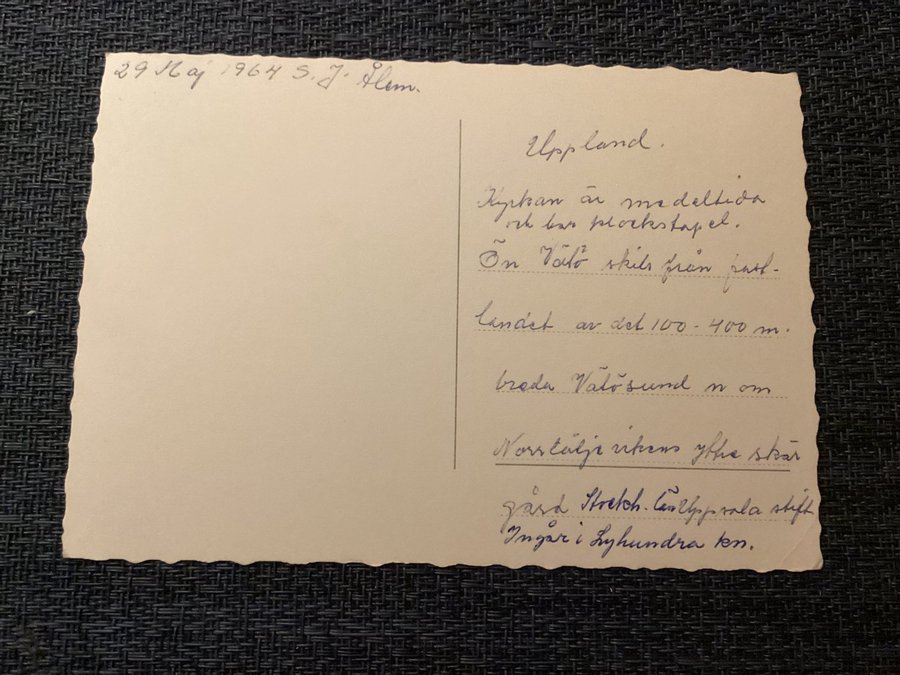 29 Maj 1964 S. J. Ålem.
Uppland.
Kyrkan är medeltida
och har klockstapel.
Ön Vätö skils från fast-
landet av det 100-400 m.
breda Vätösund n om
Norrtälje vikens yttre skär
gård Stockh. län Uppsala stift
Ingår i Lyhundra kn.